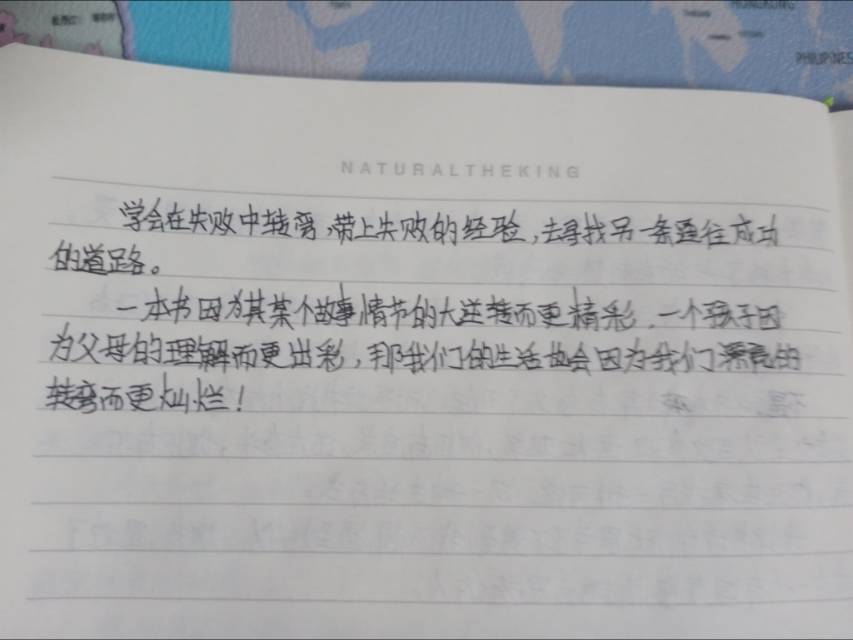 HONGKONG
PHILIPINES
NATURALTHEKING
学会在失败中转弯,带上失败的经验,去寻找另一条通往成功
的道路。
一本书因为其某个故事情节的大逆转而更精彩,一个孩子因
为父母的理解而更出彩,那我们的生活也会因为我们漂亮的
转弯而更灿烂!